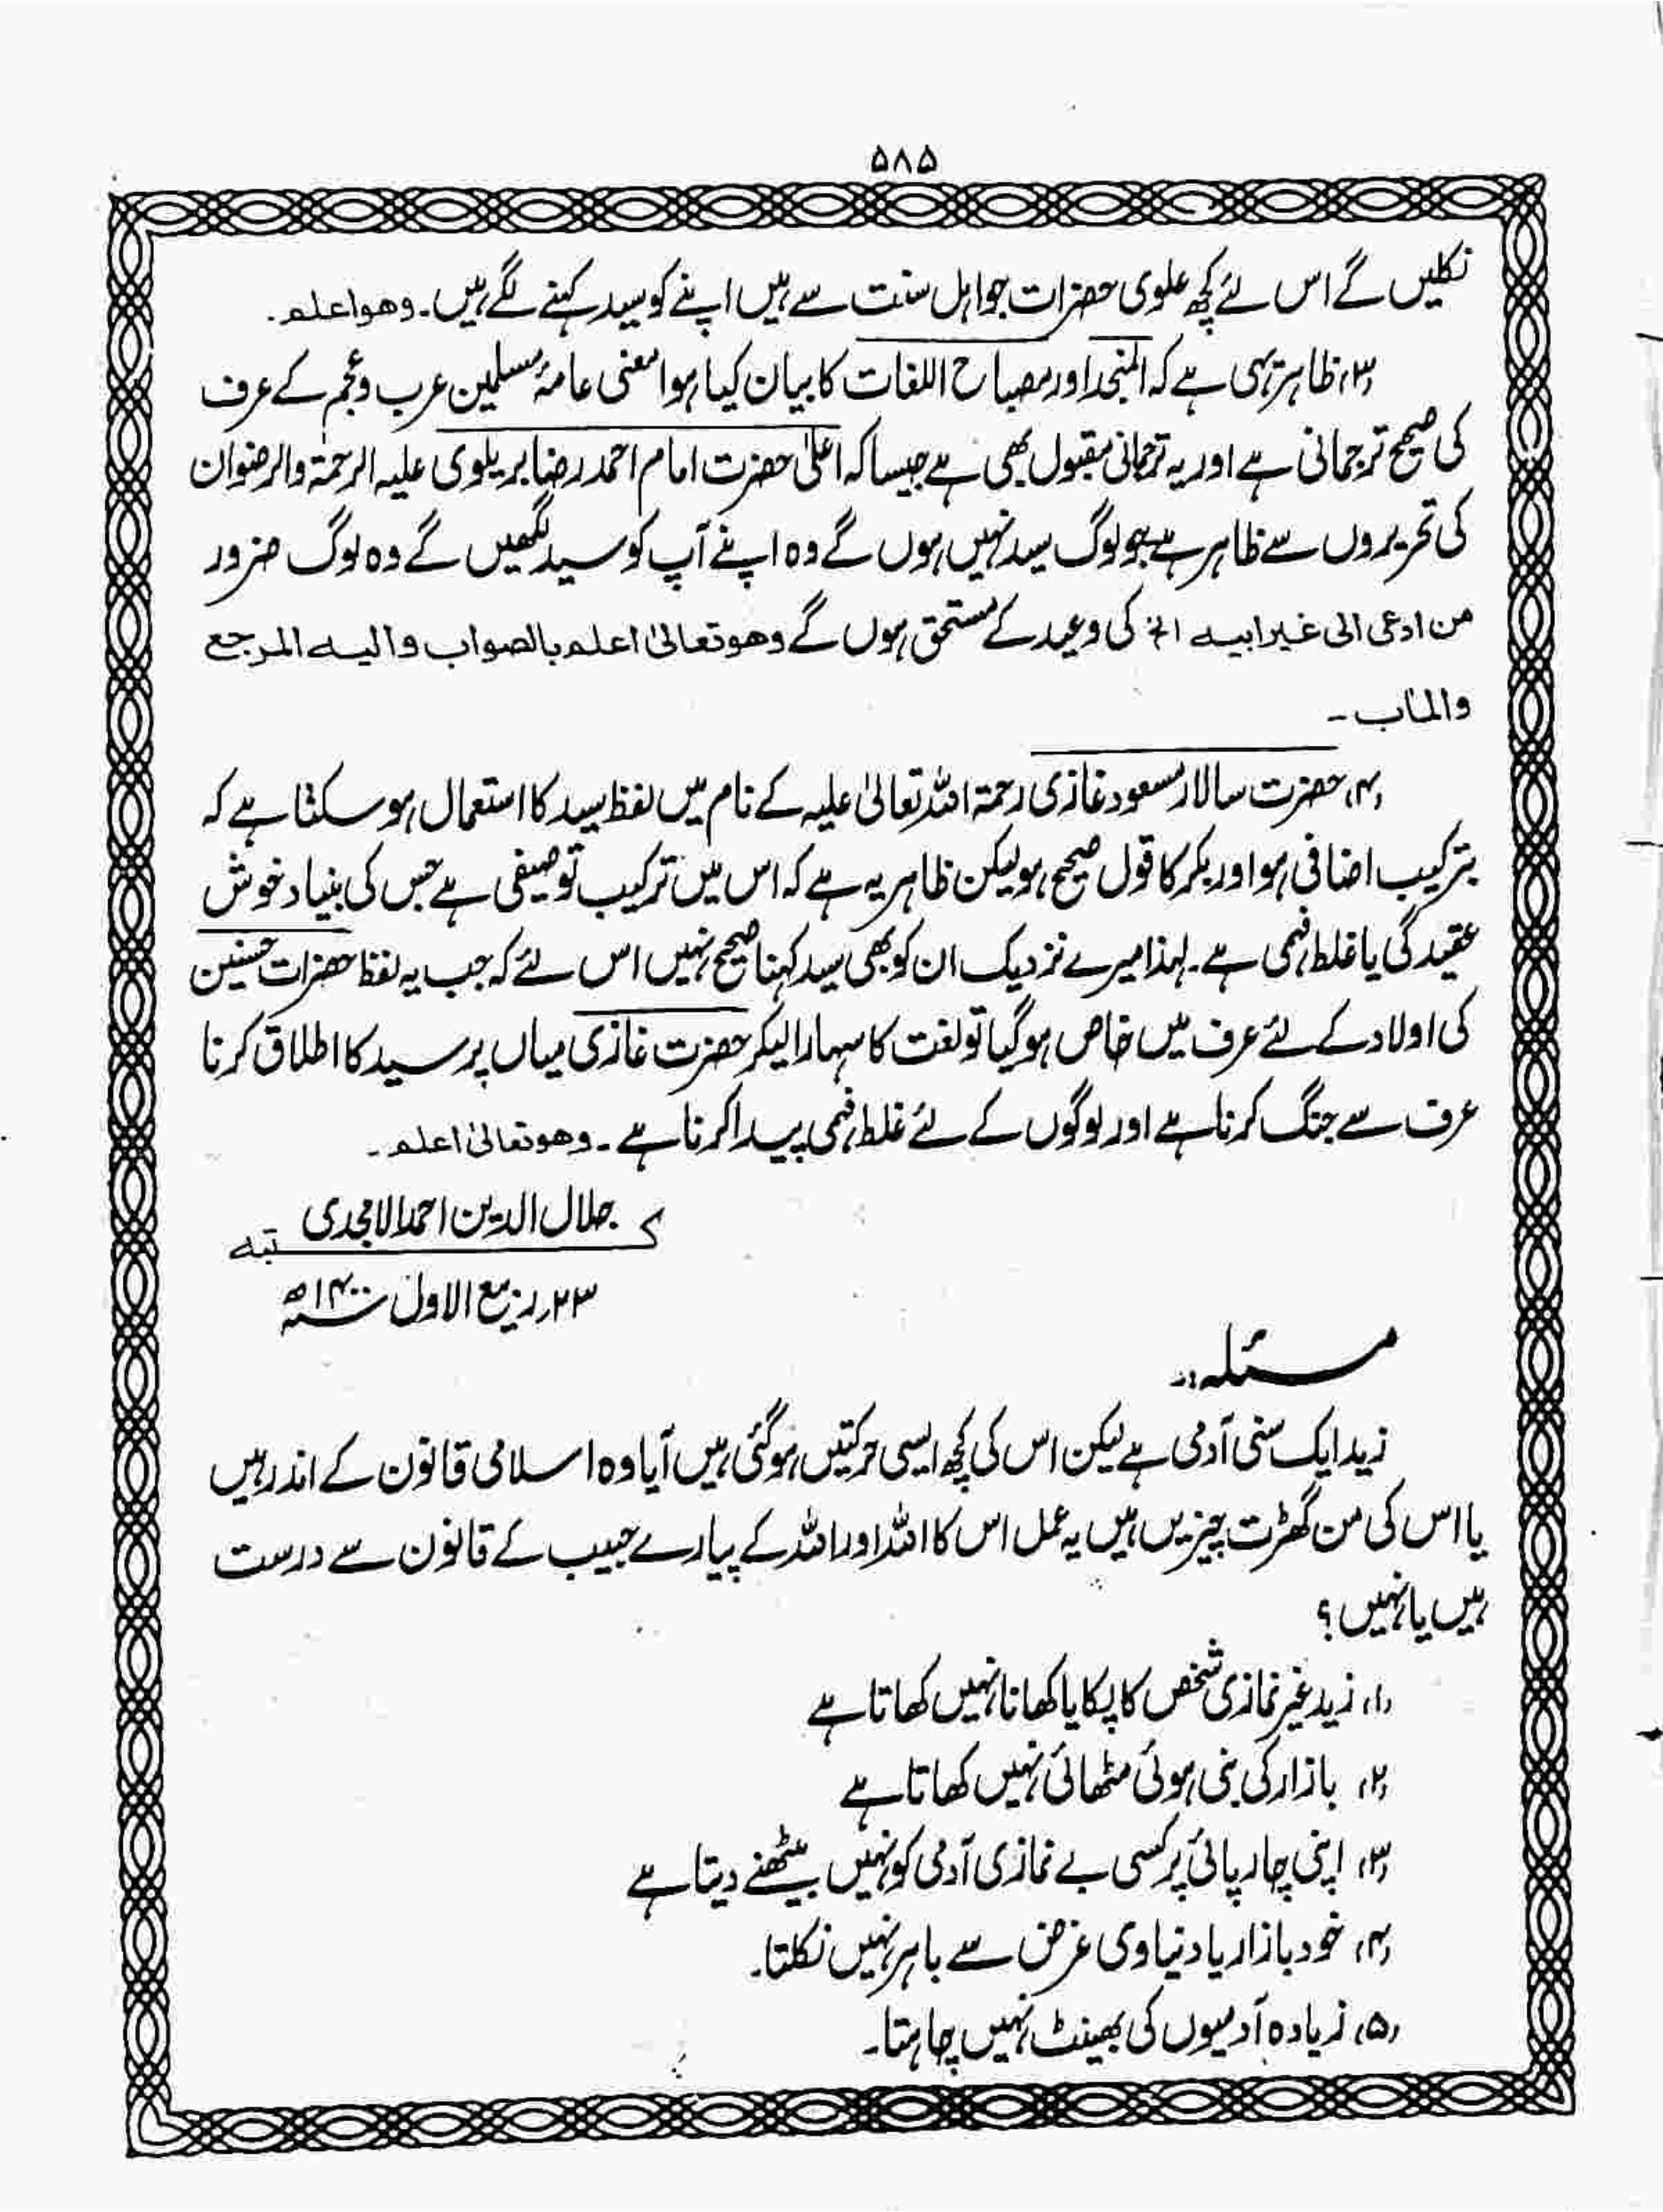 ۵۸۵
نکلیں گے اس لئے کچھ علوی حضرات جو اہل سنت سے ہیں اپنے کو سید کہنے لگے ہیں۔ وھو اعلم۔
(۳) ظاہر یہی ہے کہ المنجد اور مصباح اللغات کا بیان کیا ہوا معنی عامۂ مسلمین عرب و عجم کے عرف
کی صحیح ترجمانی ہے اور یہ ترجمانی مقبول بھی ہے جیسا کہ اعلیٰ حضرت امام احمد رضا بریلوی علیہ الرحمۃ والرضوان
کی تحریروں سے ظاہر ہے جو لوگ سید نہیں ہوں گے وہ اپنے آپ کو سید لکھیں گے وہ لوگ ضرور
من ادعی الی غیر ابیہ الخ کی وعید کے مستحق ہوں گے وھو تعالیٰ اعلم بالصواب والیہ المرجع
والمآب ۔
(۴) حضرت سالار مسعود غازی رحمۃ اللہ تعالیٰ علیہ کے نام میں لفظ سید کا استعمال ہو سکتا ہے کہ
بترکیب اضافی ہو اور بکر کا قول صحیح ہو لیکن ظاہر یہ ہے کہ اس میں ترکیب توصیفی ہے جس کی بنیاد خوش
عقیدگی یا غلط فہمی ہے۔ لہذا میرے نزدیک ان کو بھی سید کہنا صحیح نہیں اس لئے کہ جب یہ لفظ حضرات حسنین
کی اولاد کے لئے عرف میں خاص ہو گیا تو لغت کا سہارا لیکر حضرت غازی میاں پر سید کا اطلاق کرنا
عرف سے جنگ کرنا ہے اور لوگوں کے لئے غلط فہمی پیدا کرنا ہے ۔ وھو تعالیٰ اعلم ۔
کتبہ جلال الدین احمد الامجدی
۲۳؍ ربیع الاول سنہ ۱۴۰۰ھ
مسئلہ:۔
زید ایک سنی آدمی ہے لیکن اس کی کچھ ایسی حرکتیں ہو گئی ہیں آیا وہ اسلامی قانون کے اندر ہیں
یا اس کی من گھڑت چیزیں ہیں یہ عمل اس کا اللہ اور اللہ کے پیارے حبیب کے قانون سے درست
ہیں یا نہیں ؟
(۱) زید غیر نمازی شخص کا پکایا کھانا نہیں کھاتا ہے
(۲) بازار کی بنی ہوئی مٹھائی نہیں کھاتا ہے
(۳) اپنی چارپائی پر کسی بے نمازی آدمی کو نہیں بیٹھنے دیتا ہے
(۴) خود بازار یا دنیاوی غرض سے باہر نہیں نکلتا۔
(۵) زیادہ آدمیوں کی بھینٹ نہیں چاہتا۔